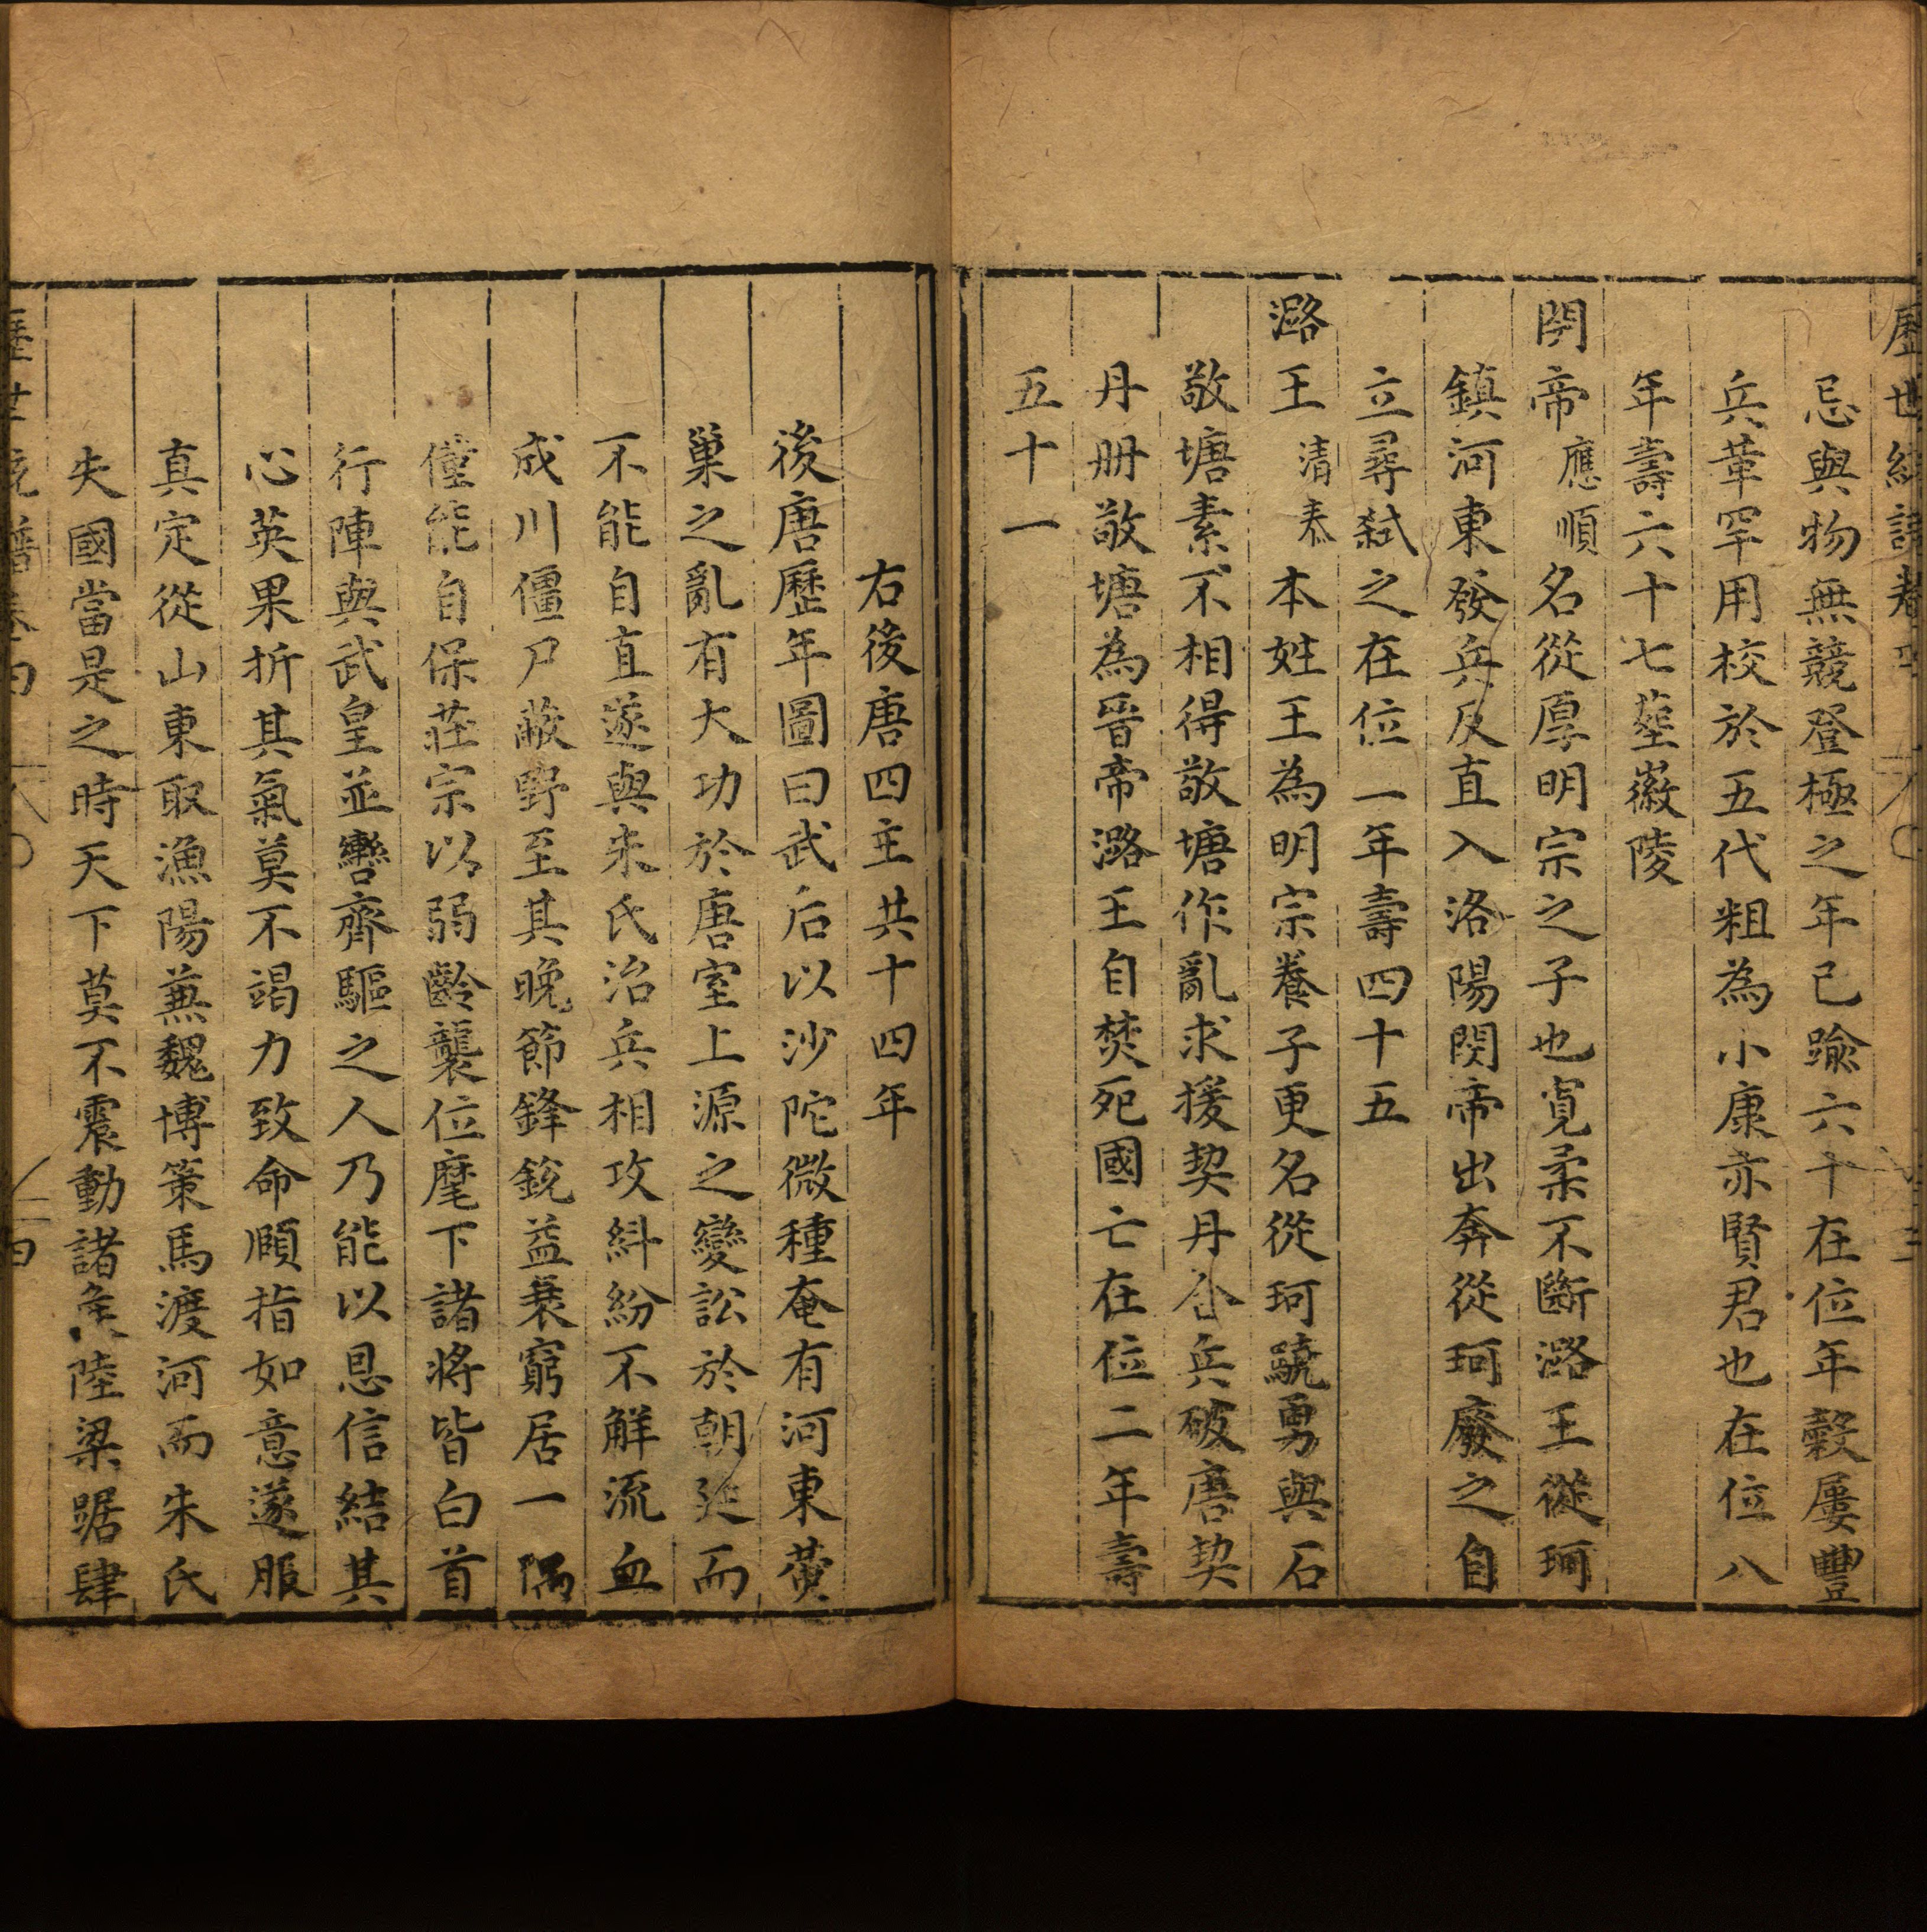 忌與物無競登極之年已踰六十在位年穀屢豐
兵革罕用校於五代粗為小康亦賢君也在位八
年壽六十七塟徽陵
閔帝應順名從厚明宗之子也寬柔不斷潞王從珂
鎮河東發兵反直入洛陽閔帝出奔從珂廢之自
立尋弑之在位一年壽四十五
潞王清泰本姓王為明宗養子更名從珂驍勇與石
敬塘素不相得敬塘作亂求援契丹合兵破唐契
丹冊敬塘為晉帝潞王自焚死國亡在位二年壽
五十一
右後唐四主共十四年
後唐歷年圖曰武后以沙陀微種奄有河東黄
巢之亂有大功於唐室上源之變訟於朝廷而
不能自直遂與朱氏治兵相攻糾紛不觧流血
成川僵尸蔽野至其晚節鋒銳益衰窮居一隅
僅能自保莊宗以弱齡襲位麾下諸將皆白首
行陣與武皇並轡齊驅之人乃能以恩信結其
心英果折其氣莫不竭力致命頤指如意遂服
真定從山東取漁陽蕪魏博策馬渡河而朱氏
失國當是之時天下莫不震動諸矦陸梁踞肆